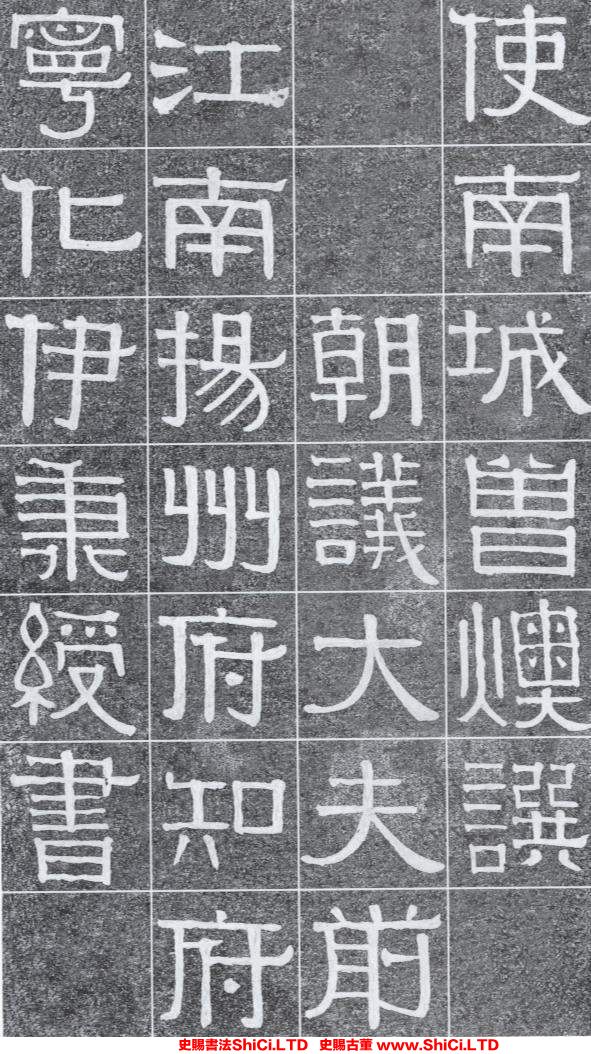 使南城曾燠譔
朝議大夫前
江南揚州府知府
寧化伊秉綬書
史賜書法ShiCi.LTD 史賜古董 www.ShiCi.LTD